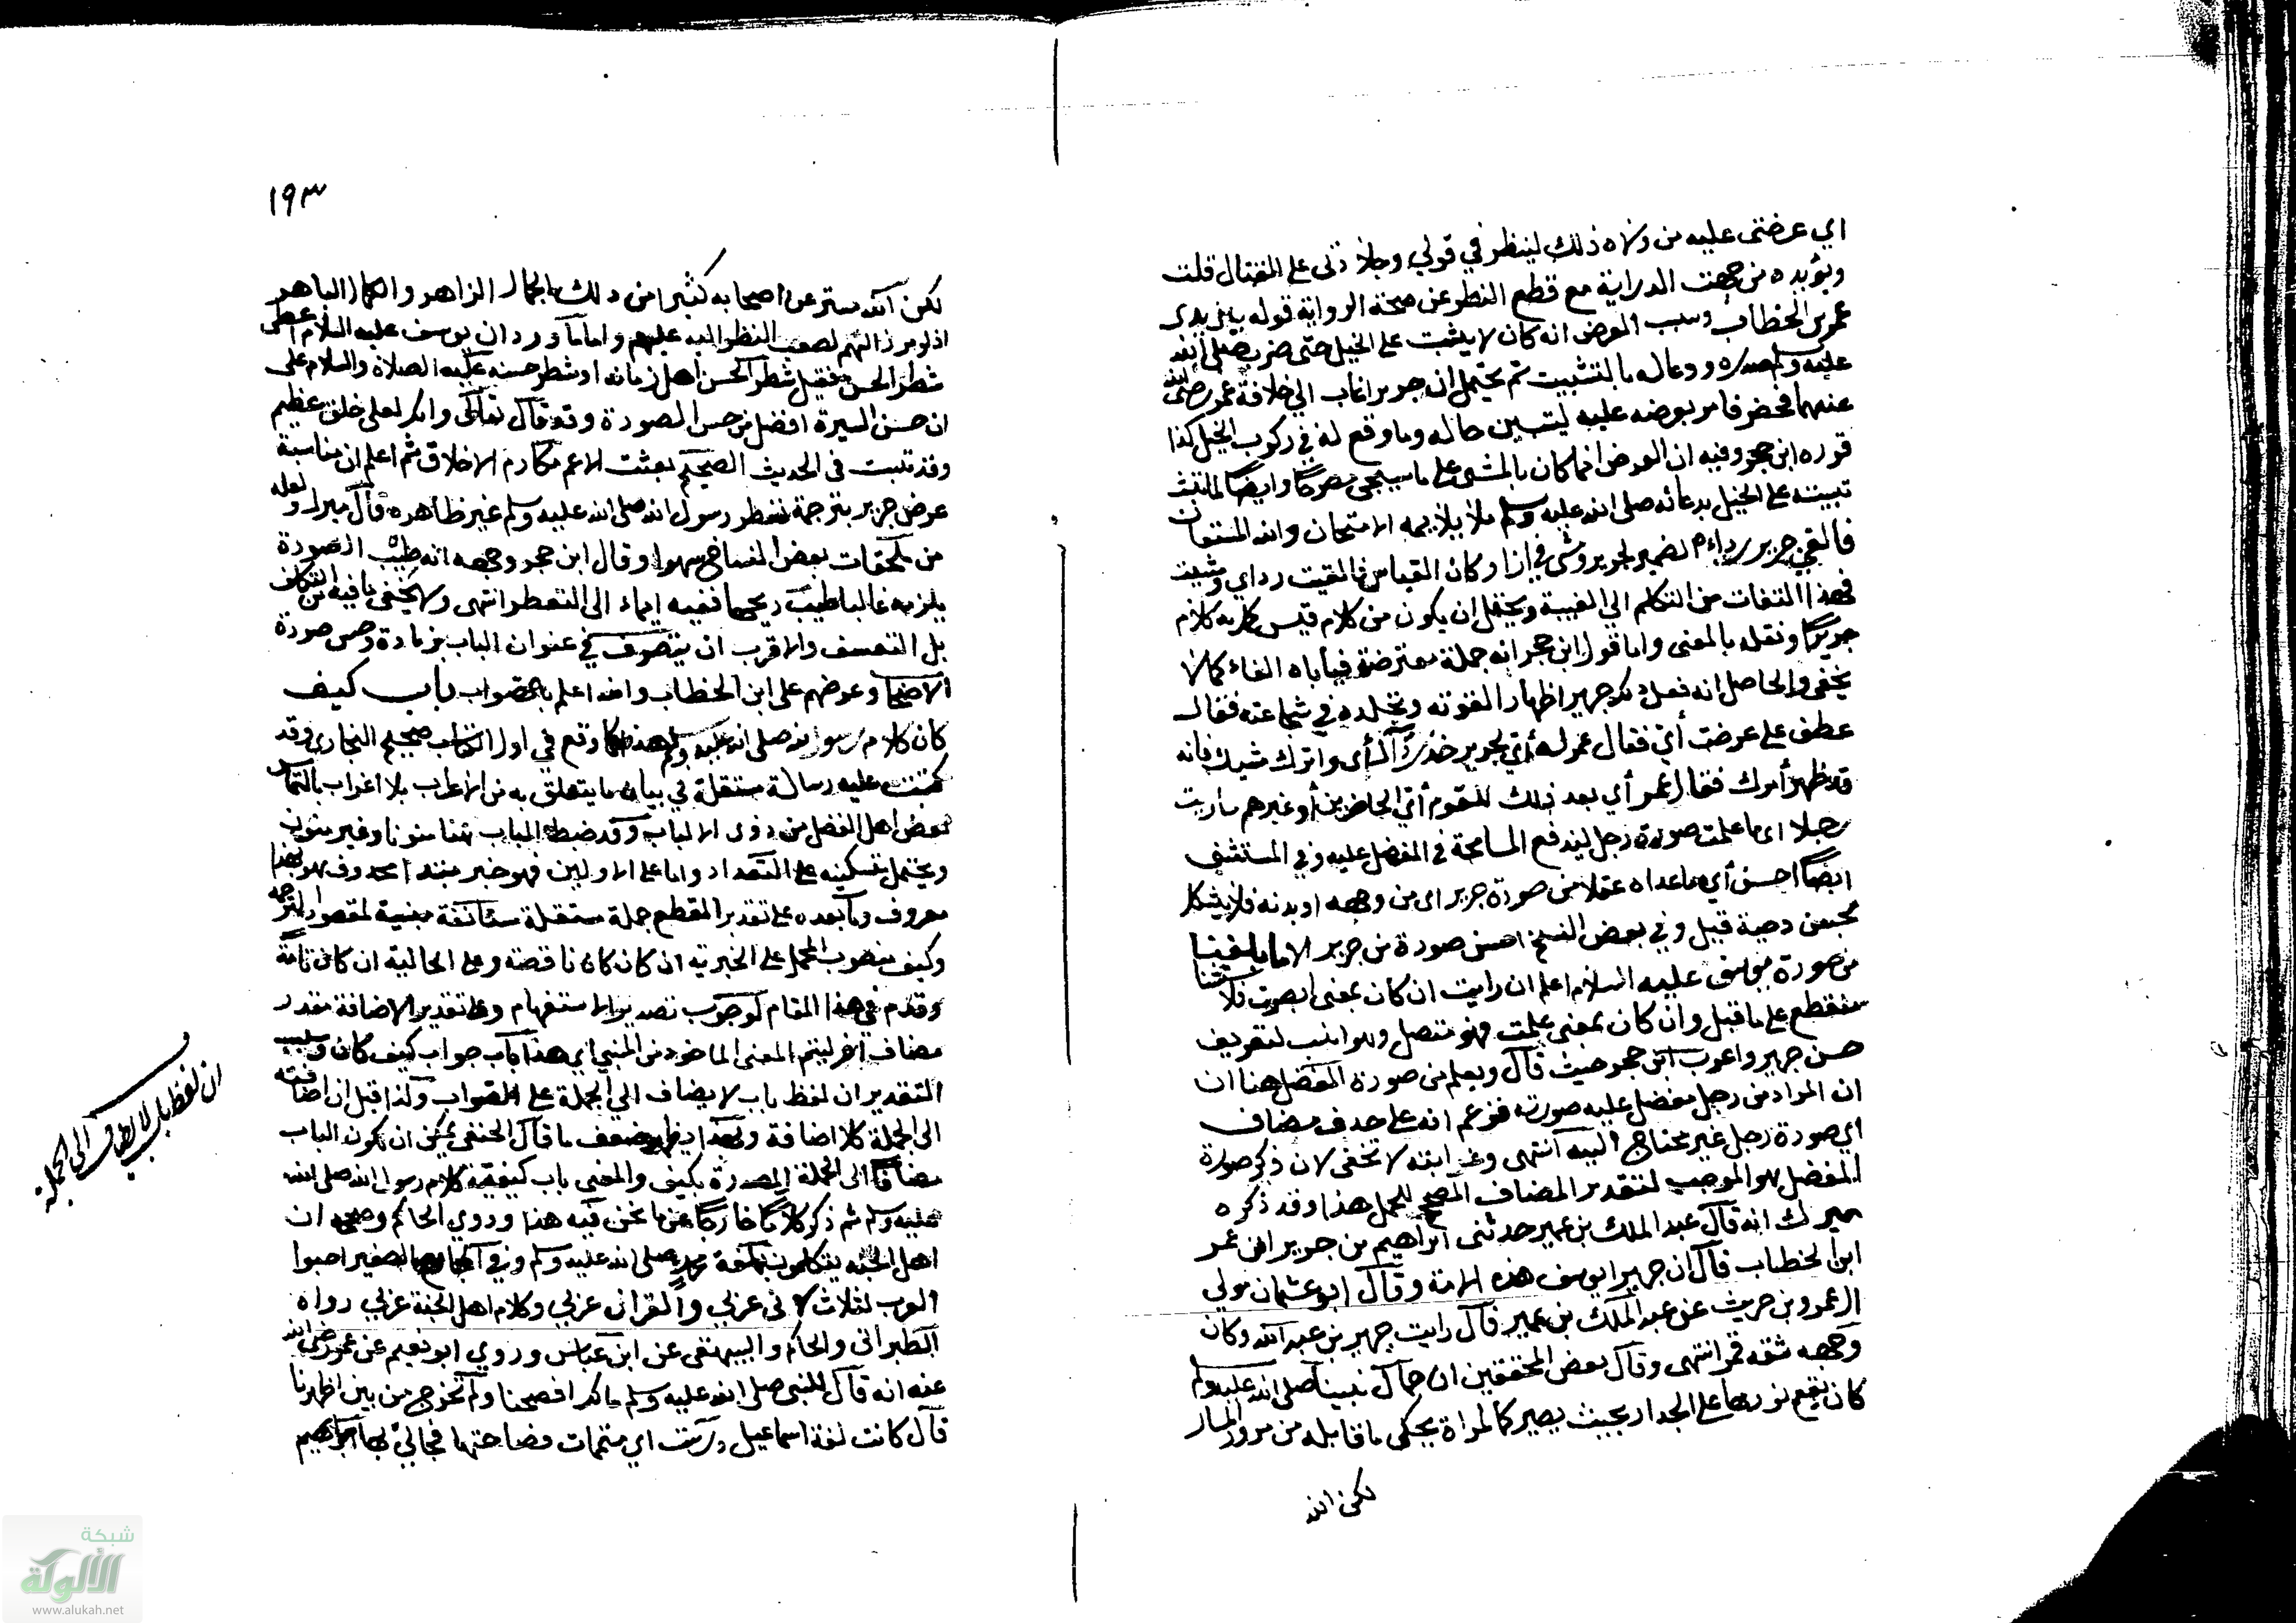 اي عرضني عليه من ولاه ذلك لينظر في قولي وجلادتي على القتال قلت
ويؤيده من جهت الدراية مع قطع النظر عن صحة الرواية قوله بين يدي
عمر بن الخطاب وسبب العرض انه كان لا يثبت على الخيل حتى ضرب صلى الله
عليه وسلم صدره ودعا له بالتثبيت ثم يحتمل ان جريرا غاب الى خلافة عمر رضي الله
عنهما فحضر فامر بعرضه عليه ليتبين حاله وما وقع له في ركوب الخيل كذا
قرره ابن حجر وفيه ان العرض انما كان بالمشي على ما سيجي مصرحا وايضا لما ثبت
تثبيته على الخيل بدعائه صلى الله عليه وسلم فلا يلايمه الامتحان والله المستعان
فالقى جرير رداءه الضمير لجرير ومشى في ازار وكان القياس فالقيت رداي ومشيت
فهذا التفات من التكلم الى الغيبة ويحتمل ان يكون من كلام قيس كلام
جرير ونقله بالمعنى واما قول ابن حجر انه جملة معترضة فيأباه الفاء كما لا
يخفى والحاصل انه فعل جرير اظهارا لقوته وتجلده في شجاعته فقال
عطف على عرضت أي فقال عمر له أي لجرير خذ رداءك أي واترك مشيك فانه
قد ظهر أمرك فقال عمر أي بعد ذلك للقوم أي الحاضرين أو غيرهم ما رايت
رجلا اي ما علمت صورة رجل ليندفع المسامحة في المفضل عليه وفي المستثنى
ايضا احسن أي ما عداه عقلا من صورة جرير اى من وجهه او بدنه فلا يشكل
بحسن دحية قيل وفي بعض النسخ احسن صورة من جرير الا ما بلغنا
من صورة يوسف عليه السلام اعلم ان رايت ان كان بمعنى ابصرت فالاستثنا
منقطع على ما قيل وان كان بمعنى علمت فهو متصل وهو انسب لتعريف
حسن جرير واغرب ابن حجر حيث قال ويعلم من صورة المفضل هنا ان
ان المراد من رجل مفضل عليه صورته فزعم انه على حذف مضاف
اي صورة رجل غير محتاج اليه انتهى وغرابته لا تخفى لان ذكر صورة
المفضل هو الموجب لتقدير المضاف المصحح للحمل هذا وقد ذكره
ميرك انه قال عبد الملك بن عمير حدثني ابراهيم بن جرير ان عمر
ابن الخطاب قال ان جريرا يوسف هذه الامة وقال ابو عثمان مولى
ال عمرو بن حريث عن عبد الملك بن عمير قال رايت جرير بن عبد الله وكان
وجهه شقه قمر انتهى وقال بعض المحققين ان جمال نبينا صلى الله عليه وسلم
كان يقع نورها على الجدار بحيث يصير كالمراة يحكى ما قابله من مرور المار
لكن الله
١٩٣
لكن الله ستر عن اصحابه كثيرا من ذلك الجمال الزاهر والكمال الباهر
اذ لو برز اليهم لصعب النظر اليه عليهم واما ما ورد ان يوسف عليه السلام اعطى
شطر الحسن فقيل شطر الحسن اهل زمانه او شطر حسنه عليه الصلاة والسلام على
ان حسن السيرة افضل من حسن الصورة وقد قال تعالى وانك لعلى خلق عظيم
وقد ثبت في الحديث الصحيح بعثت لاتمم مكارم الاخلاق ثم اعلم ان مناسبة
عرض جرير بترجمة تعطر رسول الله صلى الله عليه وسلم غير ظاهرة قال ميرك ولعله
من ملحقات بعض النساخ سهوا وقال ابن حجر وجهه انه طيب الصورة
يلزمه غالبا طيب ريحها ففيه ايماء الى التعطر انتهى ولا يخفى ما فيه من التكلف
بل التعسف والاقرب ان يتصرف في عنوان الباب بزيادة وحسن صورة
الاصحاب وعرضهم على ابن الخطاب والله اعلم بالصواب باب كيف
كان كلام رسول الله صلى الله عليه وسلم هذا كما وقع في اول الكتاب صحيح البخاري وقد
كتبت عليه رسالة مستقلة في بيان ما يتعلق به من الاعراب بلا اغراب بالتماس
بعض اهل الفضل من ذوى الالباب وقد ضبط الباب هنا منونا وغير منون
ويحتمل تسكينه على التعداد واما على الاولين فهو خبر مبتدا محذوف هو هذا
معروف وما بعده على تقدير المقطع جملة مستقلة مستأنفة مبنية لمقصود الترجمه
وكيف منصوب المحل على الخبرية ان كان كان ناقصة وعلى الحالية ان كان تامة
وقدم في هذا المقام لوجوب تصدير الاستفهام وعلى تقدير الاضافة مقدر
مضاف اخر ليتم المعنى الماخوذ من المبني اي هذا باب جواب كيف كان وسبب
التقدير ان لفظ باب لا يضاف الى الجملة على الصواب ولذا قيل ان اضافته
الى الجملة كلا اضافة وبهذا يظهر ضعف ما قال الحنفي يمكن ان يكون الباب
مضافا الى الجملة المصدرة بكيف والمعنى باب كيفية كلام رسول الله صلى الله
عليه وسلم ثم ذكر كلاما خارجا عن ما نحن فيه هذا وروي الحاكم وصححه ان
اهل الجنه يتكلمون بلغة محمد صلى الله عليه وسلم وفي الجامع الصغير احبوا
العرب لثلاث لاني عربي والقران عربي وكلام اهل الجنة عربي رواه
الطبراني والحاكم والبيهقي عن ابن عباس وروي ابو نعيم عن عمر رضي الله
عنه انه قال للنبي صلى الله عليه وسلم مالك افصحنا ولم تخرج من بين اظهرنا
قال كانت لغة اسماعيل درست اي متممات فصاحتها فجاءني بها
ان لفظ باب لا يضاف الى الجملة
شبكة
الألوكة
www.alukah.net